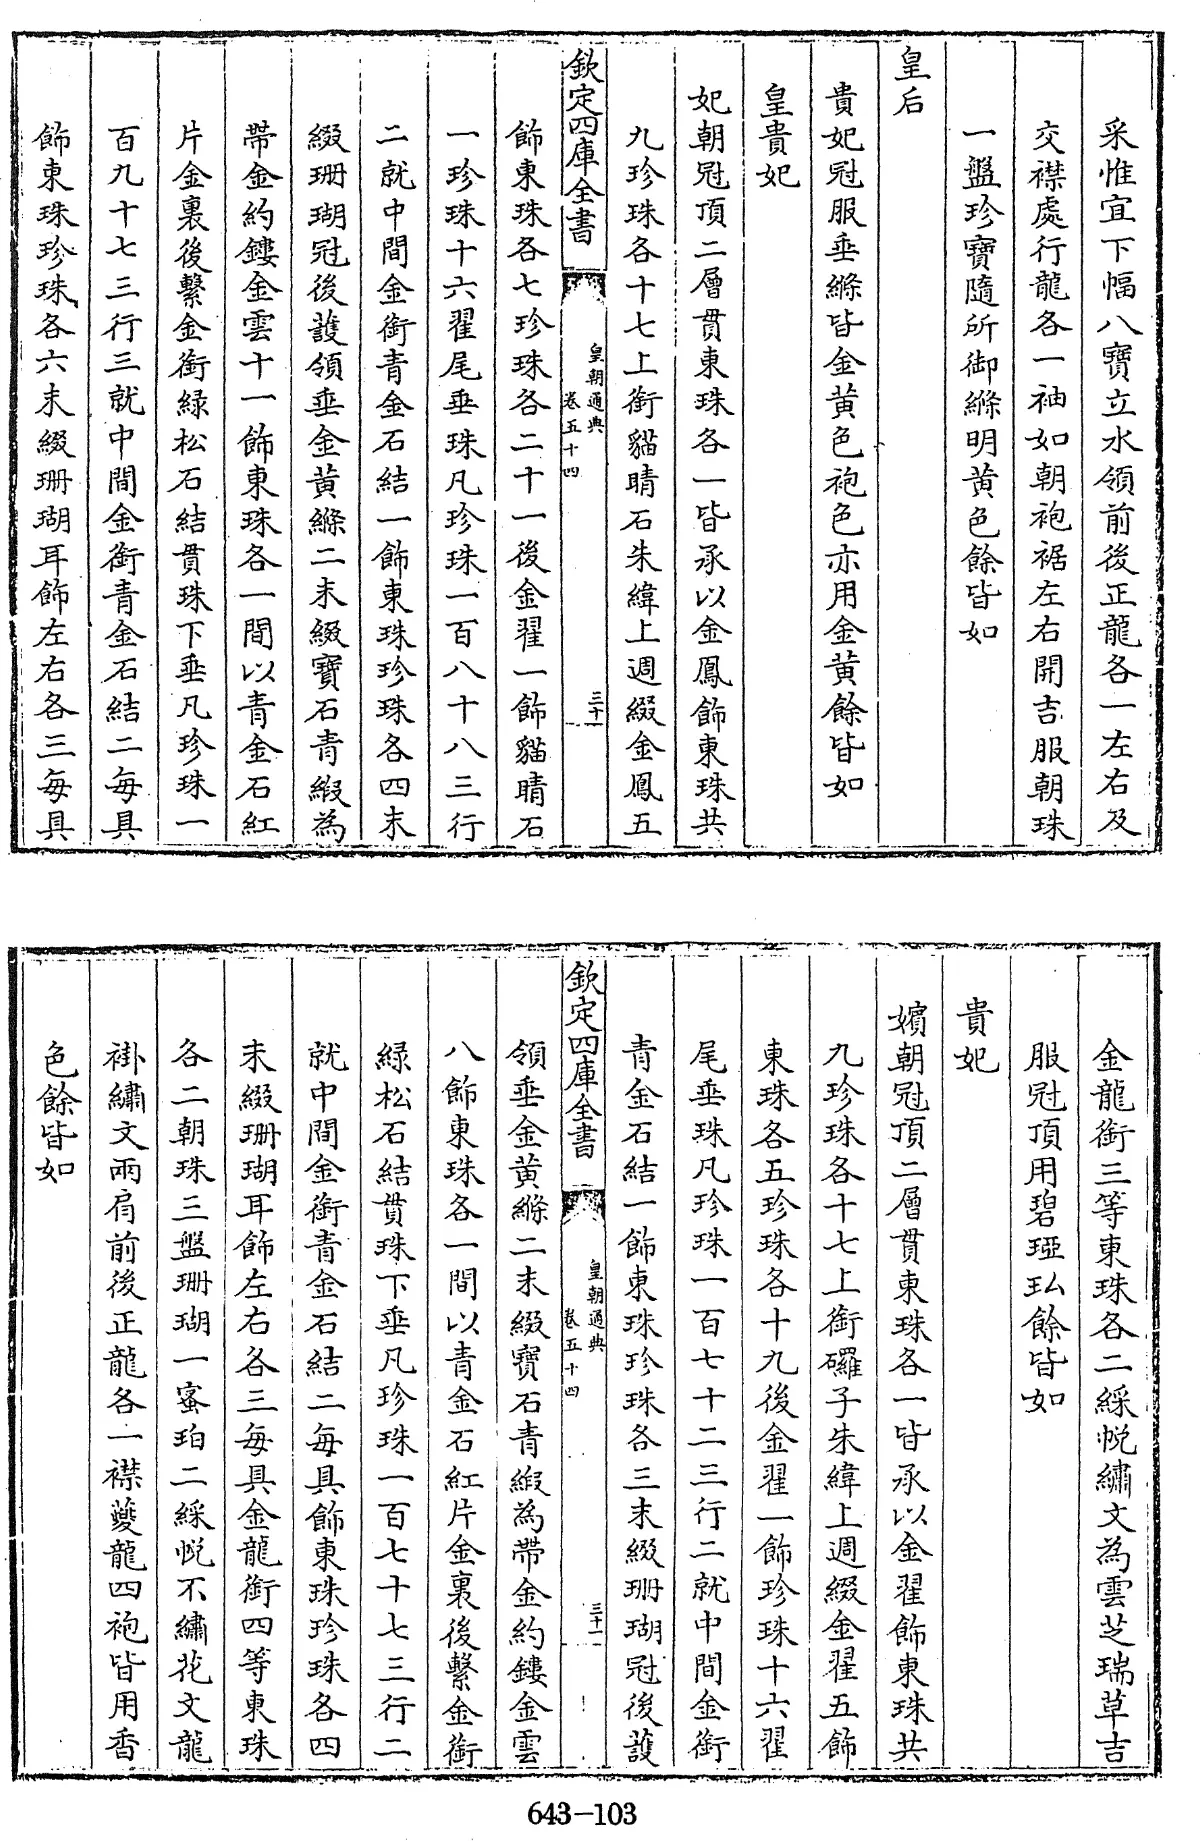 采惟宜下幅八寶立水領前後正龍各一左右及
交襟處行龍各一袖如朝袍裾左右開吉服朝珠
一盤珍寶隨所御絛明黄色餘皆如
皇后
貴妃冠服垂絛皆金黄色袍色亦用金黄餘皆如
皇貴妃
妃朝冠頂二層貫東珠各一皆承以金鳳飾東珠共
九珍珠各十七上銜貓睛石朱緯上週綴金鳳五
欽定四庫全書
皇朝通典
卷五十四
三十一
飾東珠各七珍珠各二十一後金翟一飾貓睛石
一珍珠十六翟尾垂珠凡珍珠一百八十八三行
二就中間金銜青金石結一飾東珠珍珠各四末
綴珊瑚冠後護領垂金黄絛二末綴寶石青緞為
帶金約鏤金雲十一飾東珠各一間以青金石紅
片金裏後繫金銜緑松石結貫珠下垂凡珍珠一
百九十七三行三就中間金銜青金石結二每具
飾東珠珍珠各六末綴珊瑚耳飾左右各三每具
金龍銜三等東珠各二綵帨繡文為雲芝瑞草吉
服冠頂用碧瑆玜餘皆如
貴妃
嬪朝冠頂二層貫東珠各一皆承以金翟飾東珠共
九珍珠各十七上銜礶子朱緯上週綴金翟五飾
東珠各五珍珠各十九後金翟一飾珍珠十六翟
尾垂珠凡珍珠一百七十二三行二就中間金銜
青金石結一飾東珠珍珠各三末綴珊瑚冠後護
欽定四庫全書
皇朝通典
卷五十四
三十一
領垂金黄絛二末綴寶石青緞為帶金約鏤金雲
八飾東珠各一間以青金石紅片金裏後繫金銜
緑松石結貫珠下垂凡珍珠一百七十七三行二
就中間金銜青金石結二每具飾東珠珍珠各四
末綴珊瑚耳飾左右各三每具金龍銜四等東珠
各二朝珠三盤珊瑚一蜜珀二綵帨不繡花文龍
褂繡文兩肩前後正龍各一襟夔龍四袍皆用香
色餘皆如
643-103